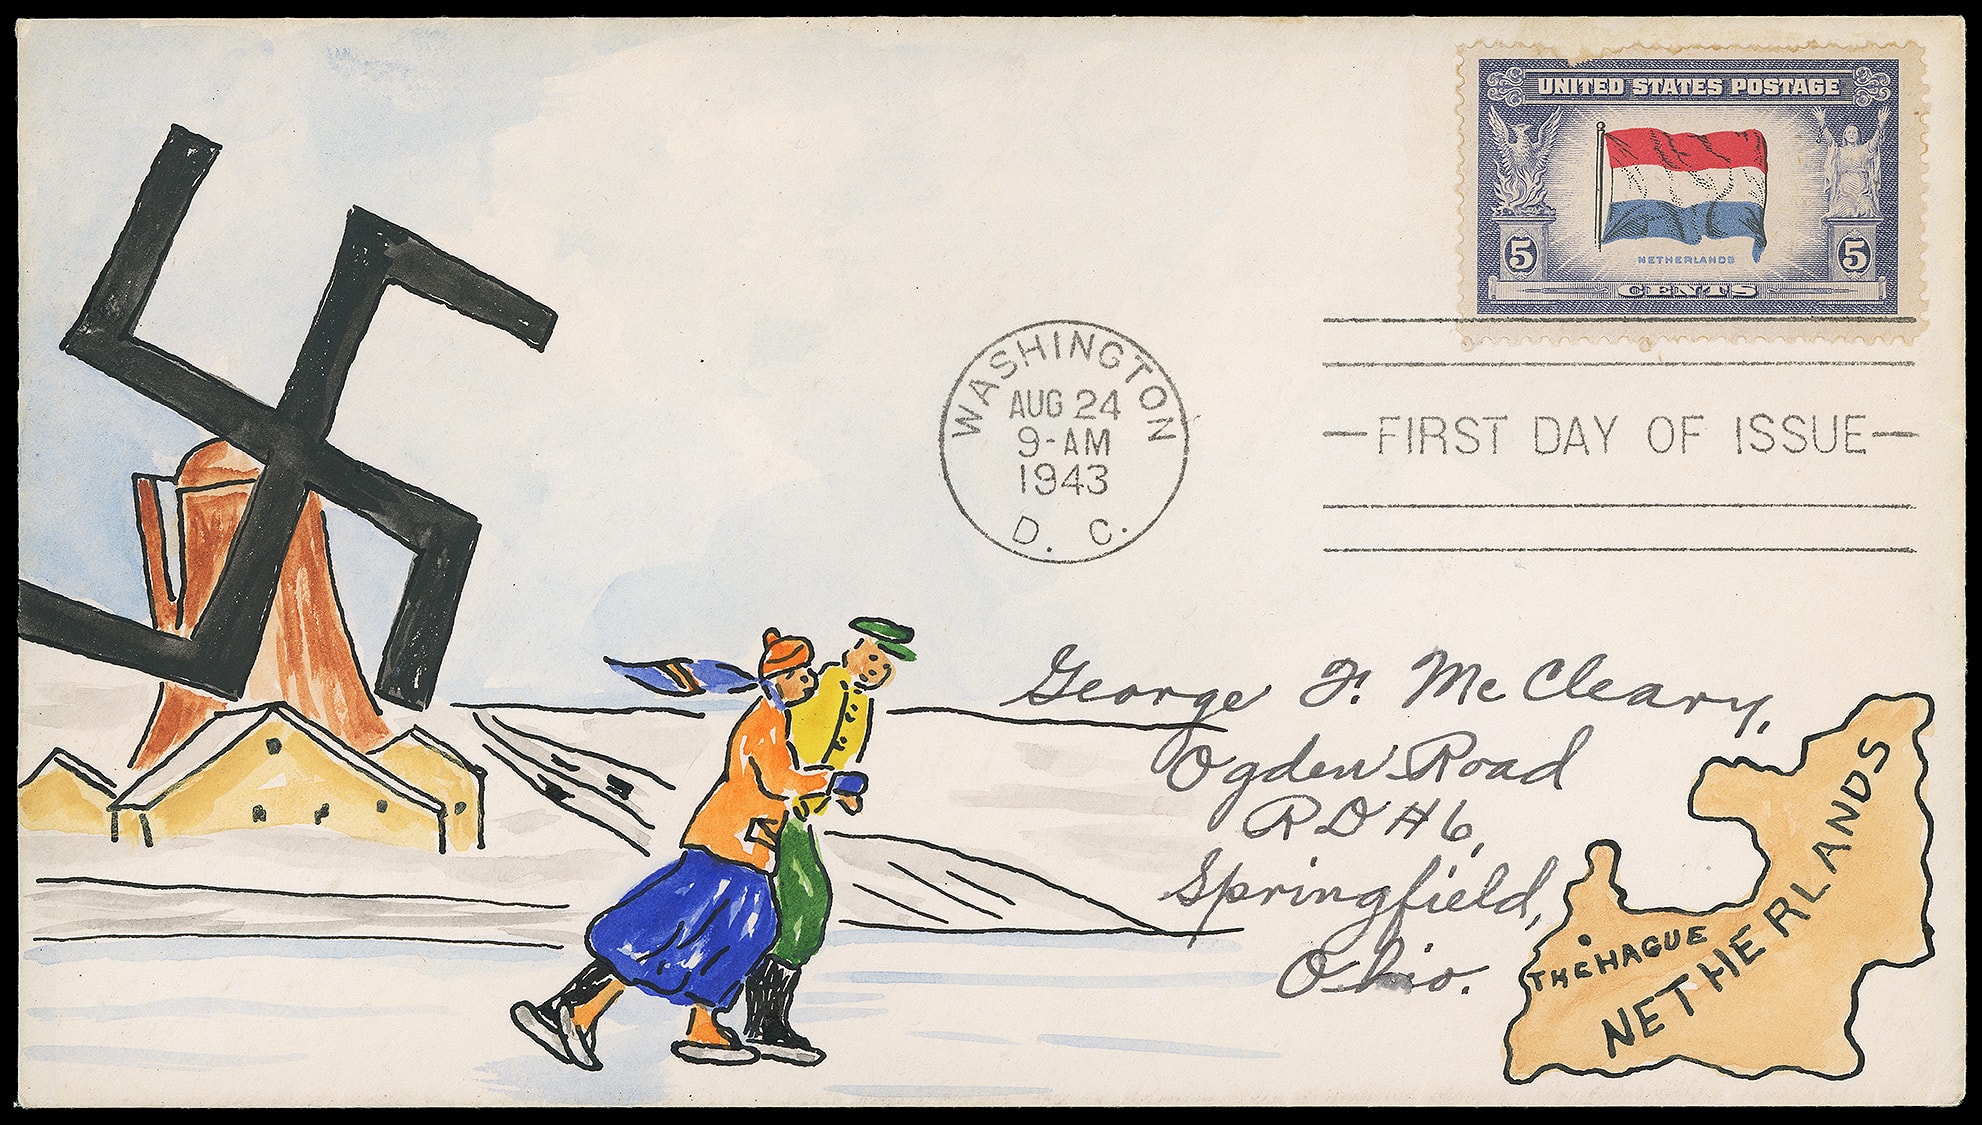 UNITED STATES POSTAGE
NETHERLANDS
5 5
CENTS
WASHINGTON
AUG 24
9-AM
1943
D. C.
—FIRST DAY OF ISSUE—
George F. McCleary,
Ogden Road
RD #6,
Springfield,
Ohio.
THE HAGUE
NETHERLANDS